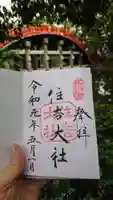 奉拝
住吉大社
令和元年五月一日